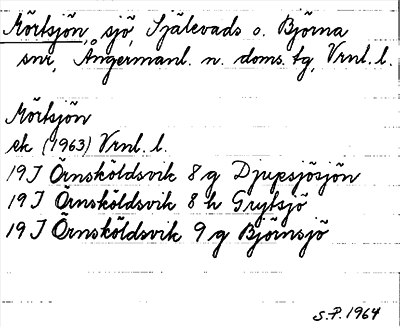 Mörtsjön, sjö, Själevads o. Björna
snr, Ångermanl. n. doms. tg, Vrnl. l.
Mörtsjön
ek (1963) Vrnl. l.
19 J Örnsköldsvik 8 g Djupsjösjön
19 J Örnsköldsvik 8 h Gryttsjö
19 J Örnsköldsvik 9 g Björnsjö
S.P. 1964